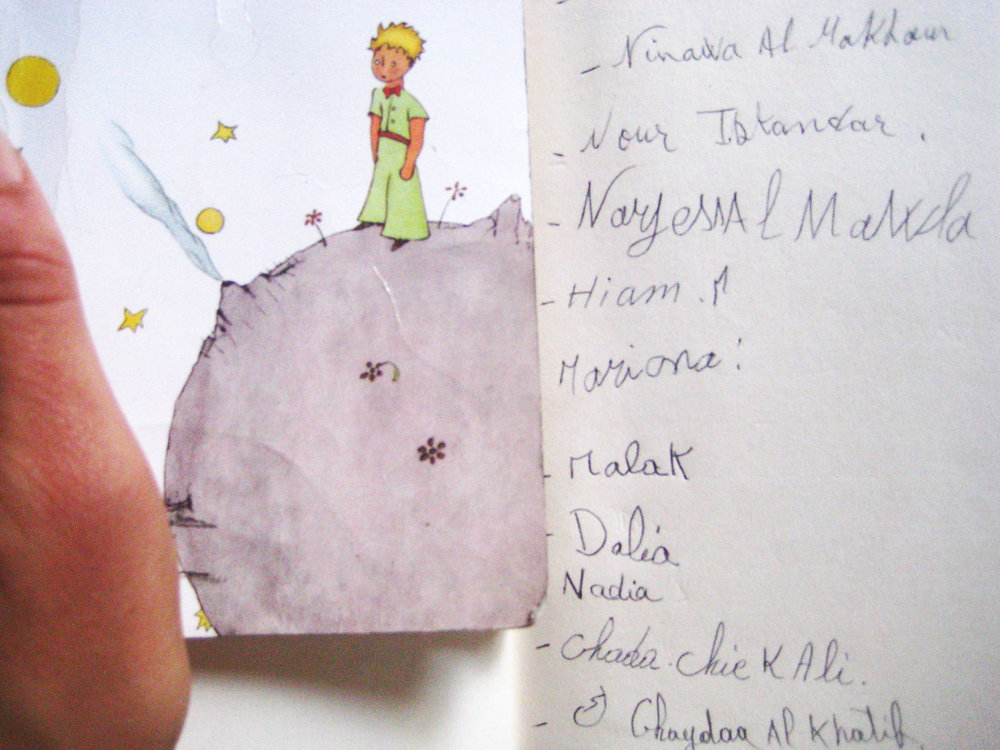 - Ninawa Al Makhour
- Nour Iskandar.
- Narjess Al Makda
- Hiam. M
Mariana!
- Malak
- Dalia
Nadia
- Ghada. Chiek Ali.
- Ghaydaa Al Khatib